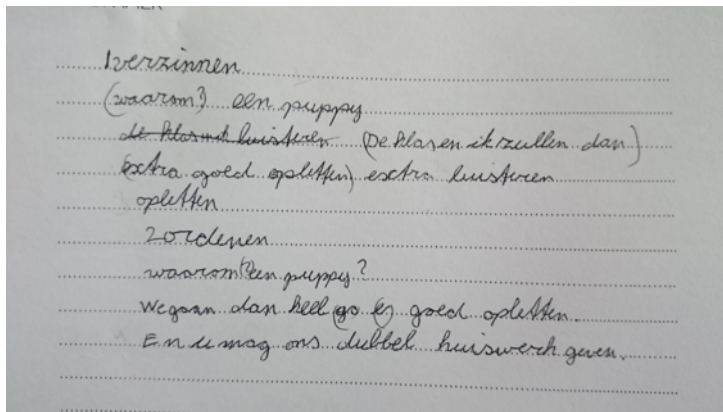 1verzinnen
(waarom?) een puppy
de klas luisteren (De klas en ik zullen dan)
(extra goed opletten) extra luisteren
opletten
2ordenen
waarom(?) een puppy?
We gaan dan heel (go e) goed opletten.
En u mag ons dubbel huiswerk geven.